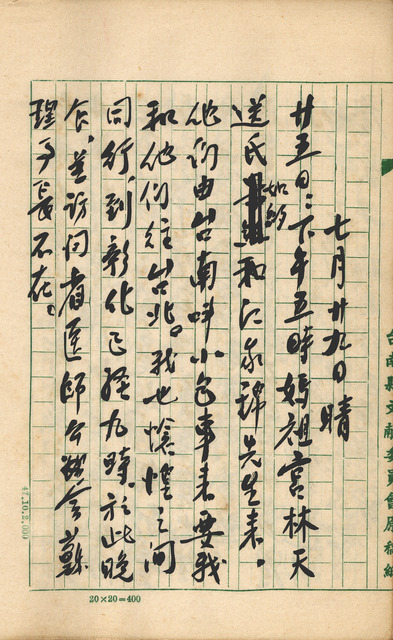 七月廿九日 晴
廿五日:下午五時媽祖宮林天
送氏如約和江家錦先生来。
他们由台南叫小包車来要我
和他们往台北。我也愴惶之间
同行,到彰化已経九時,於此晚
食,並訪问省医師公会蘇
理事長不在。
台南縣文献委員會原稿紙
47.10.2.000
20×20=400